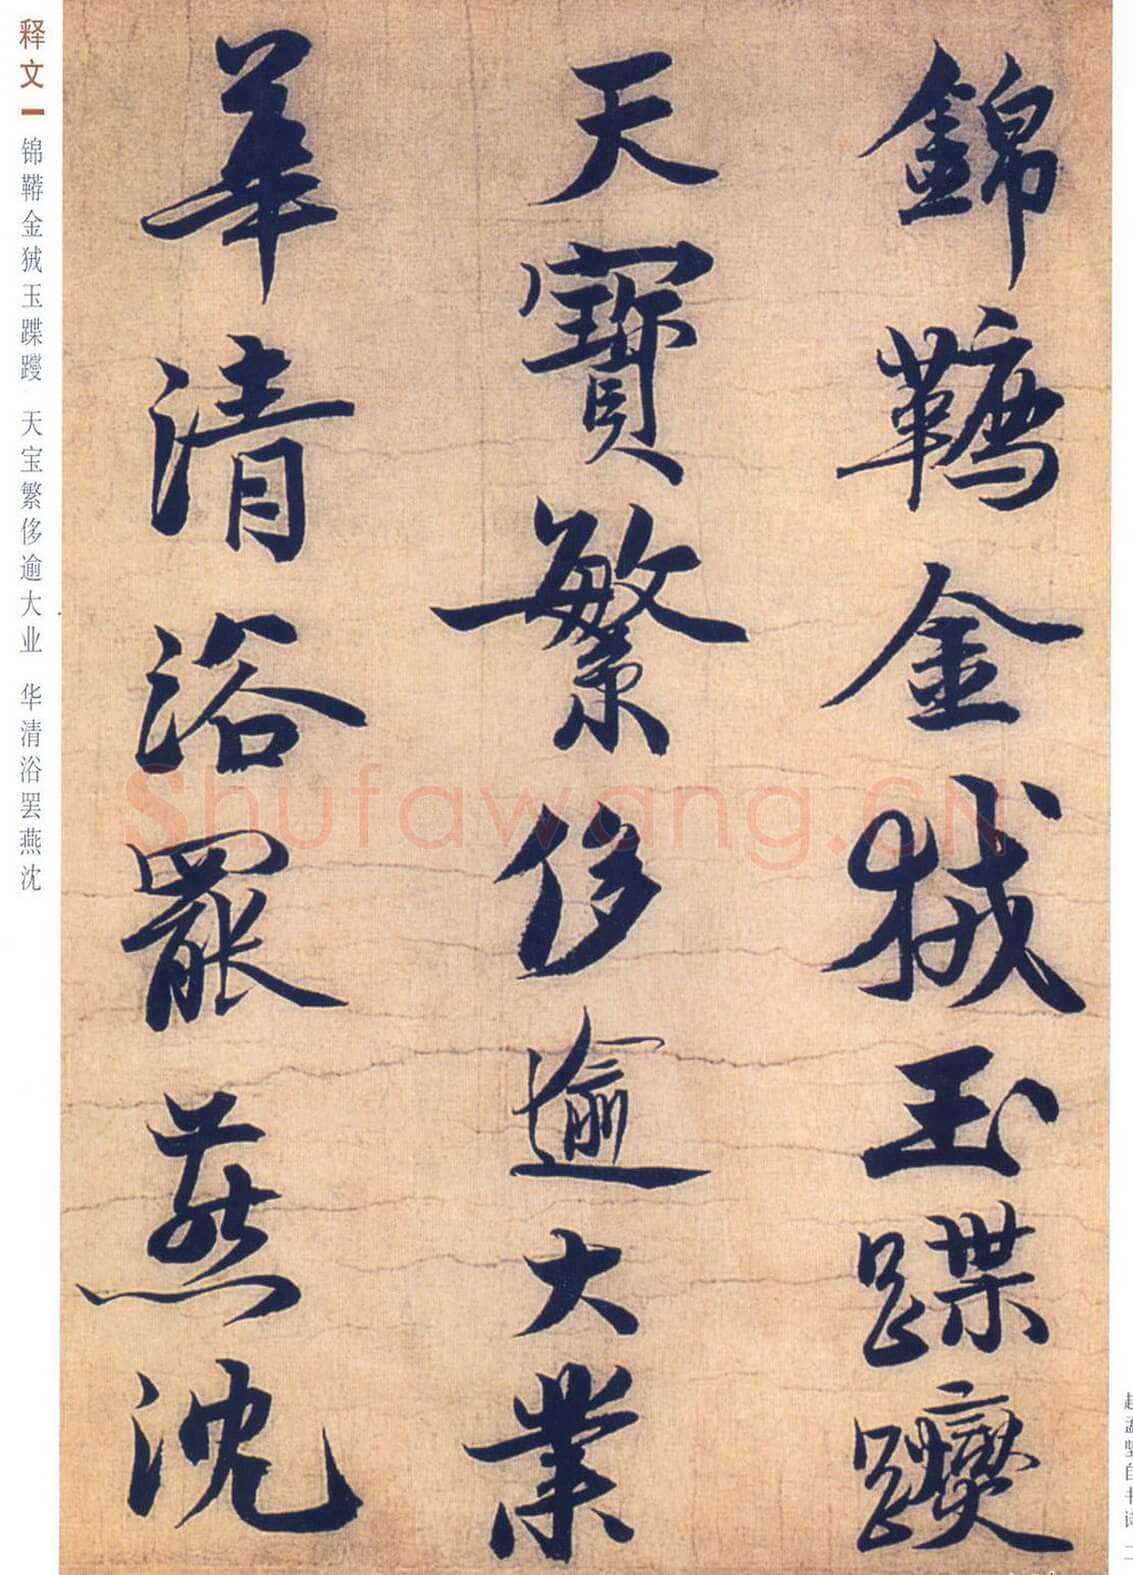 錦韉金狨玉蹀躞
天寶繁侈逾大業
華清浴罷燕沈
释文
锦鞯金狨玉蹀躞 天宝繁侈逾大业 华清浴罢燕沈
Shufawang.CN